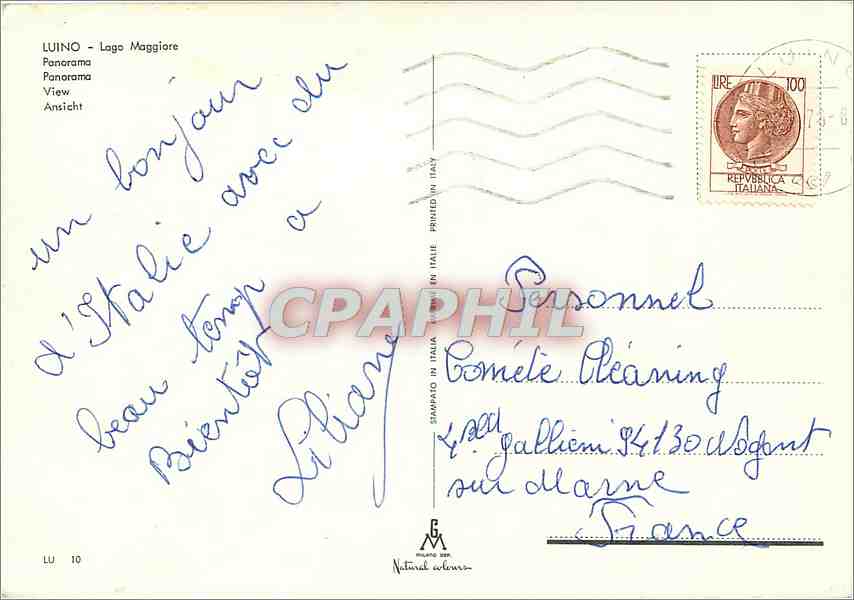 LUINO - Lago Maggiore
Panorama
Panorama
View
Ansicht
un bonjour
d'Italie avec du
beau temp a
Bientôt
Liliane
LU 10
STAMPATO IN ITALIA EN ITALIE PRINTED IN ITALY
G
M
MILANO DEP.
Natural colours
LUINO
78-8
LIRE 100
REPVBBLICA
ITALIANA
Personnel
Comète Cléaning
4 Bld gallieni 94130 Nogent
sur Marne
France
CPAPHIL